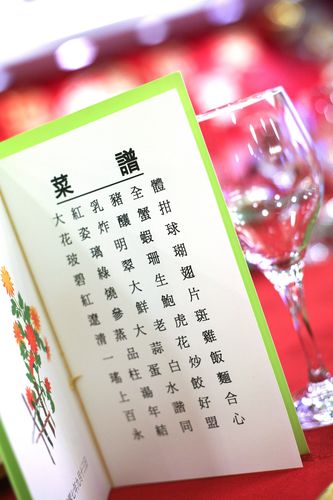 菜譜
大紅乳豬全體
花姿炸釀蟹拑
玻璃明蝦球
碧綠翠珊瑚
紅燒大生翅
遼參鮮鮑片
清蒸大老虎斑
一品蒜花雞
瑤柱蛋白炒飯
上湯水餃麵
百年諧好合
永結同盟心